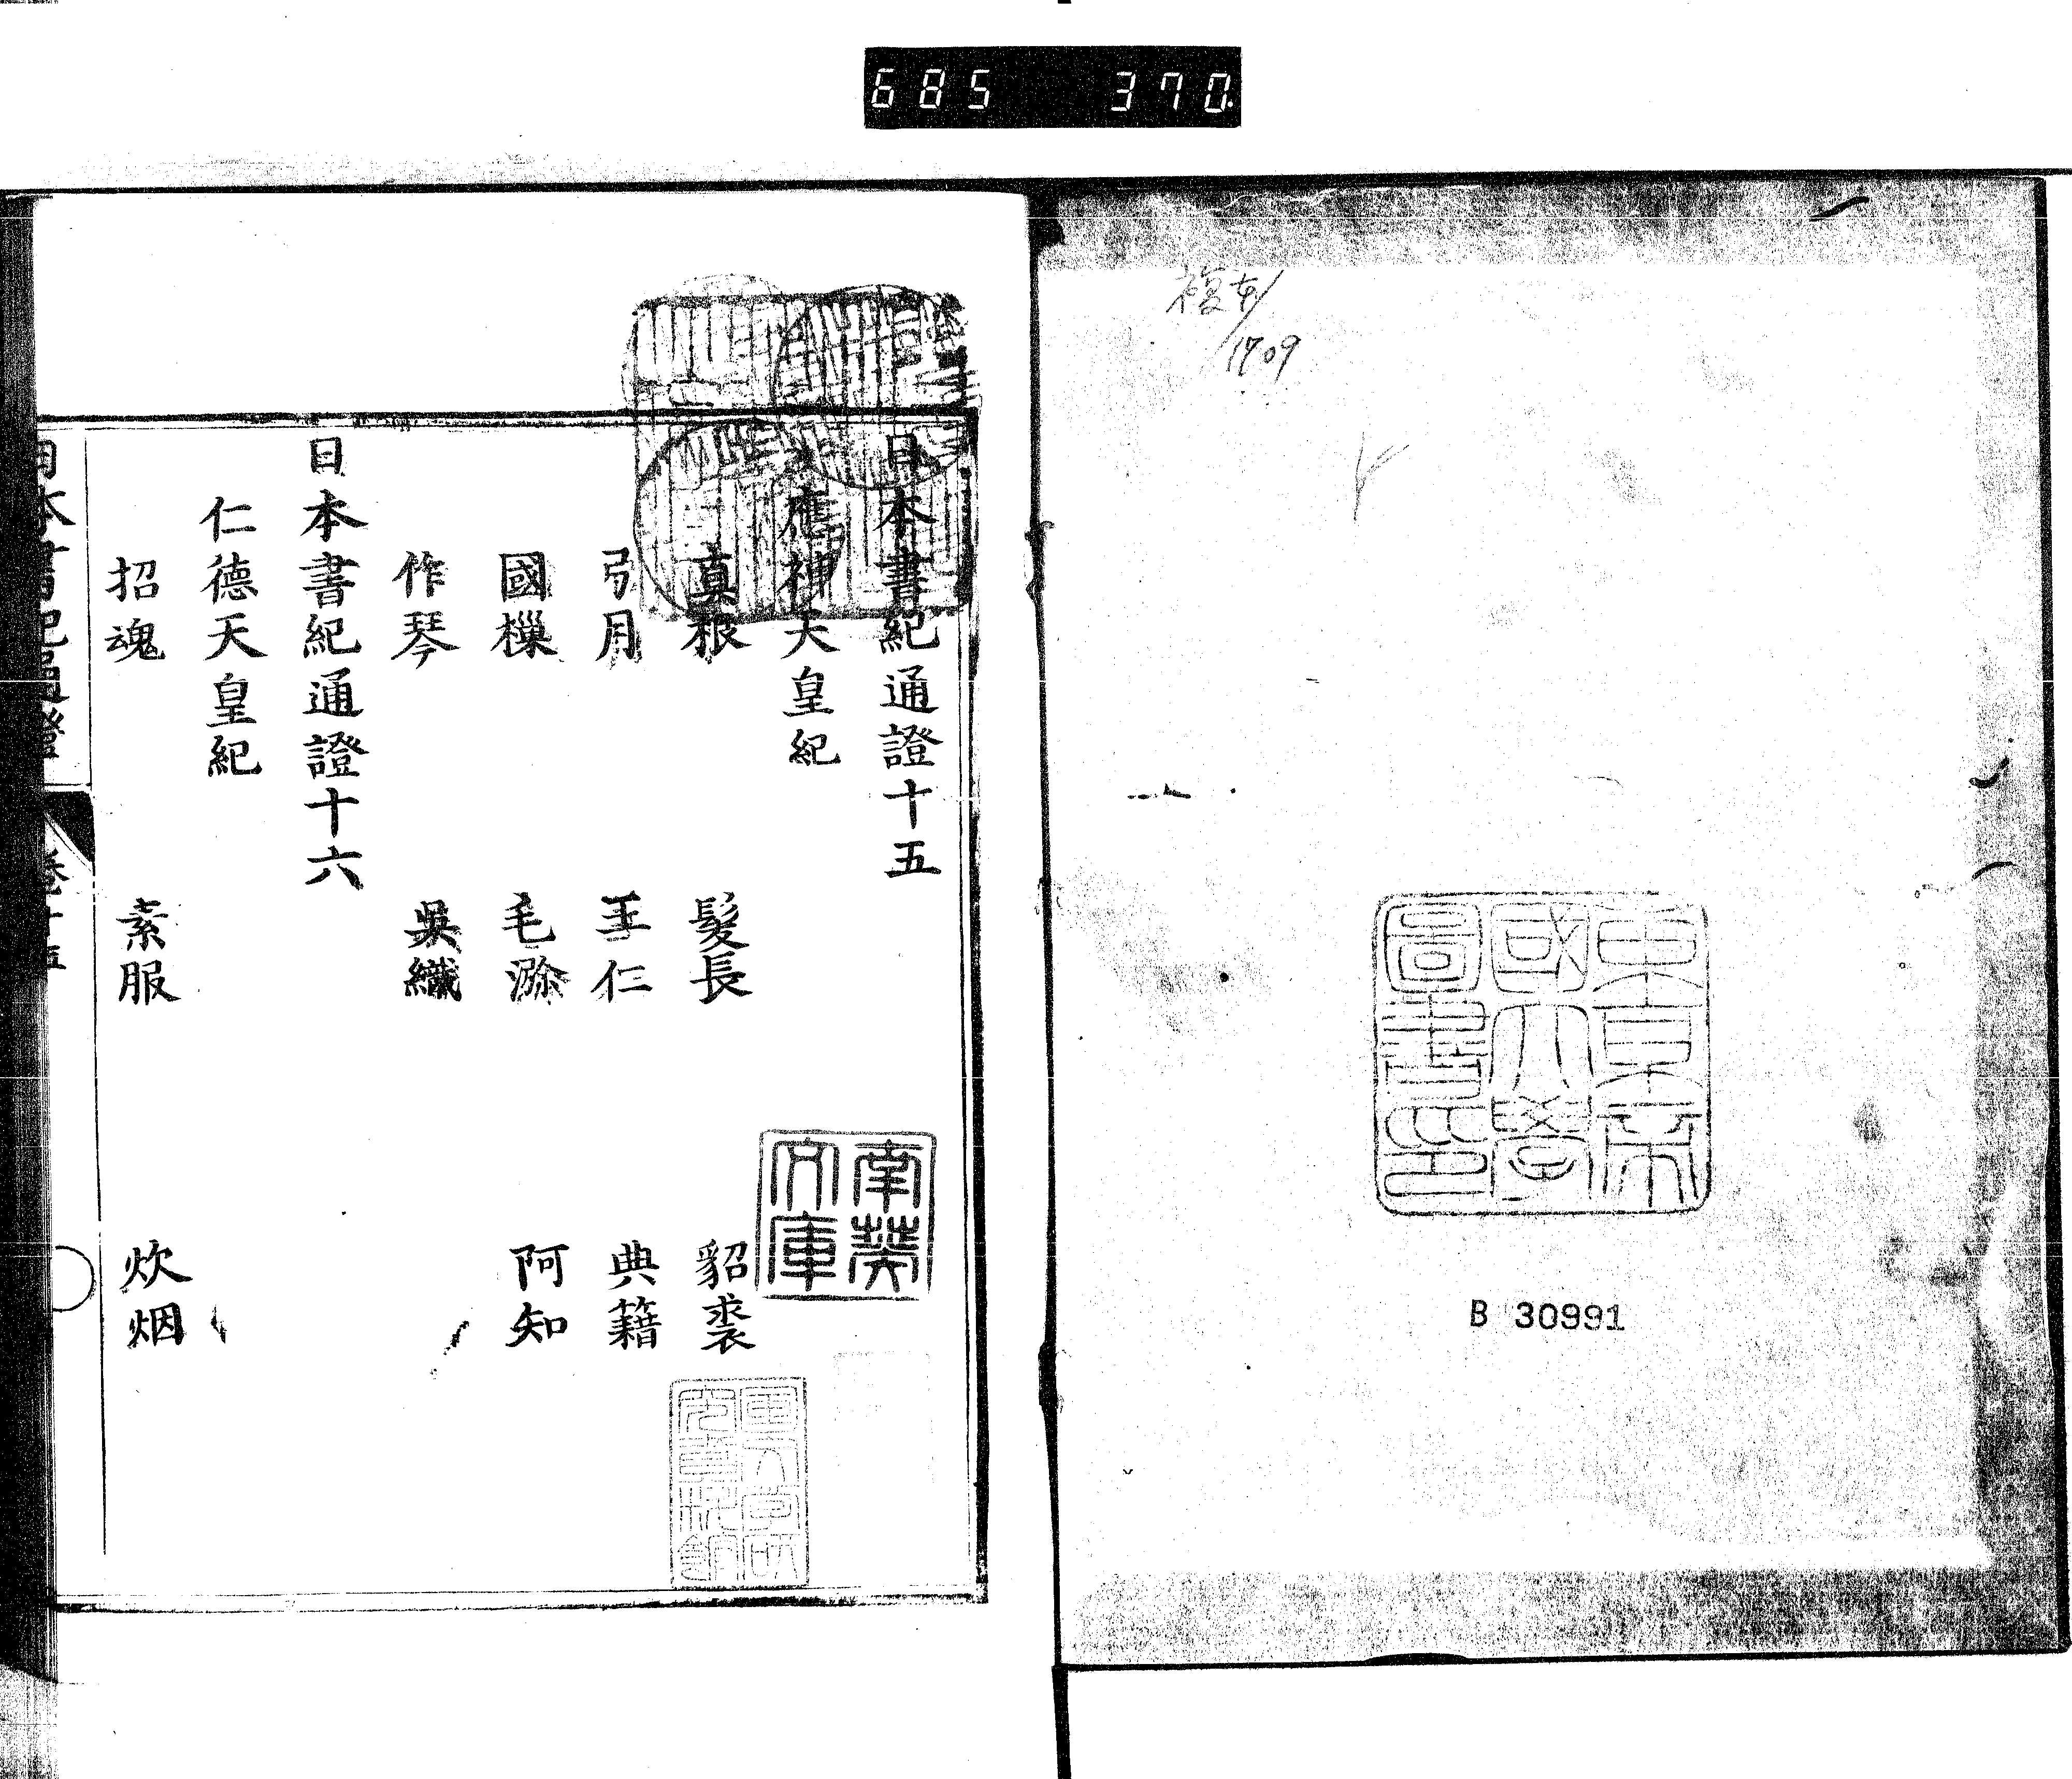 685 370
複本
1709
東京帝
國大學
圖書印
B 30991
日本書紀通證十五
應神天皇紀
真根 髮長 貂裘
弓月 王仁 典籍
國樔 毛滌 阿知
作琴 吳織
日本書紀通證十六
仁德天皇紀
招魂 素服 炊烟
日本書紀通證
南葵
文庫